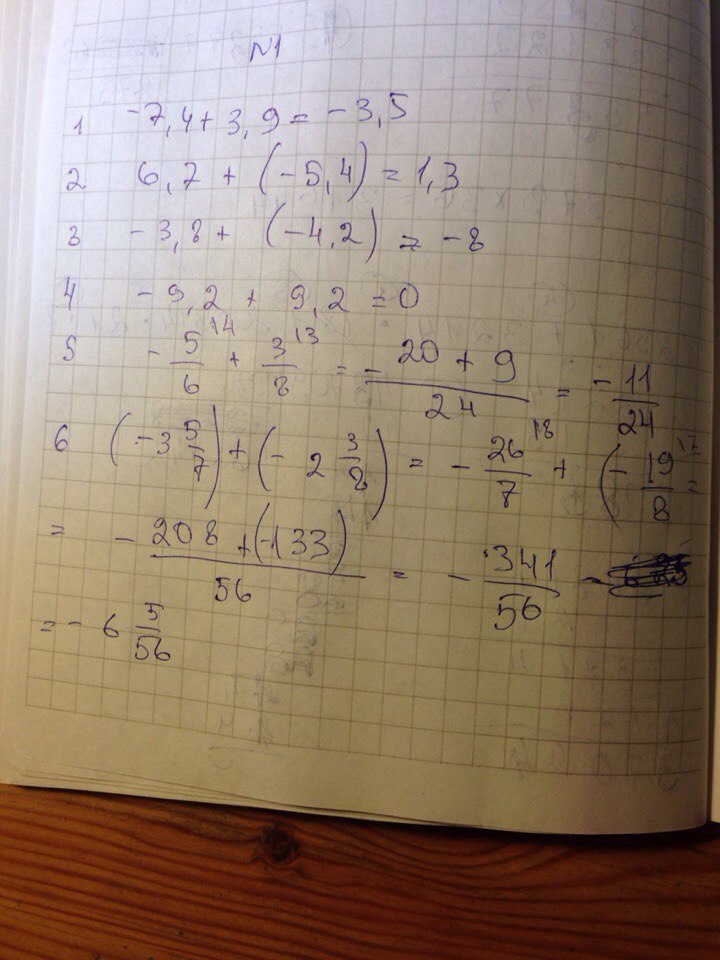 N1
1 -7,4+3,9 = -3,5
2 6,7 + (-5,4) = 1,3
3 -3,8+ (-4,2) = -8
4 -9,2 + 9,2 = 0
5 -5/6 \4 + 3/8 \3 = -20+9/24 = -11/24
6 (-3 5/7) + (-2 3/8) = -26/7 \8 + (-19/8 \7 =
= -208+(-133)/56 = -341/56
= -6 5/56